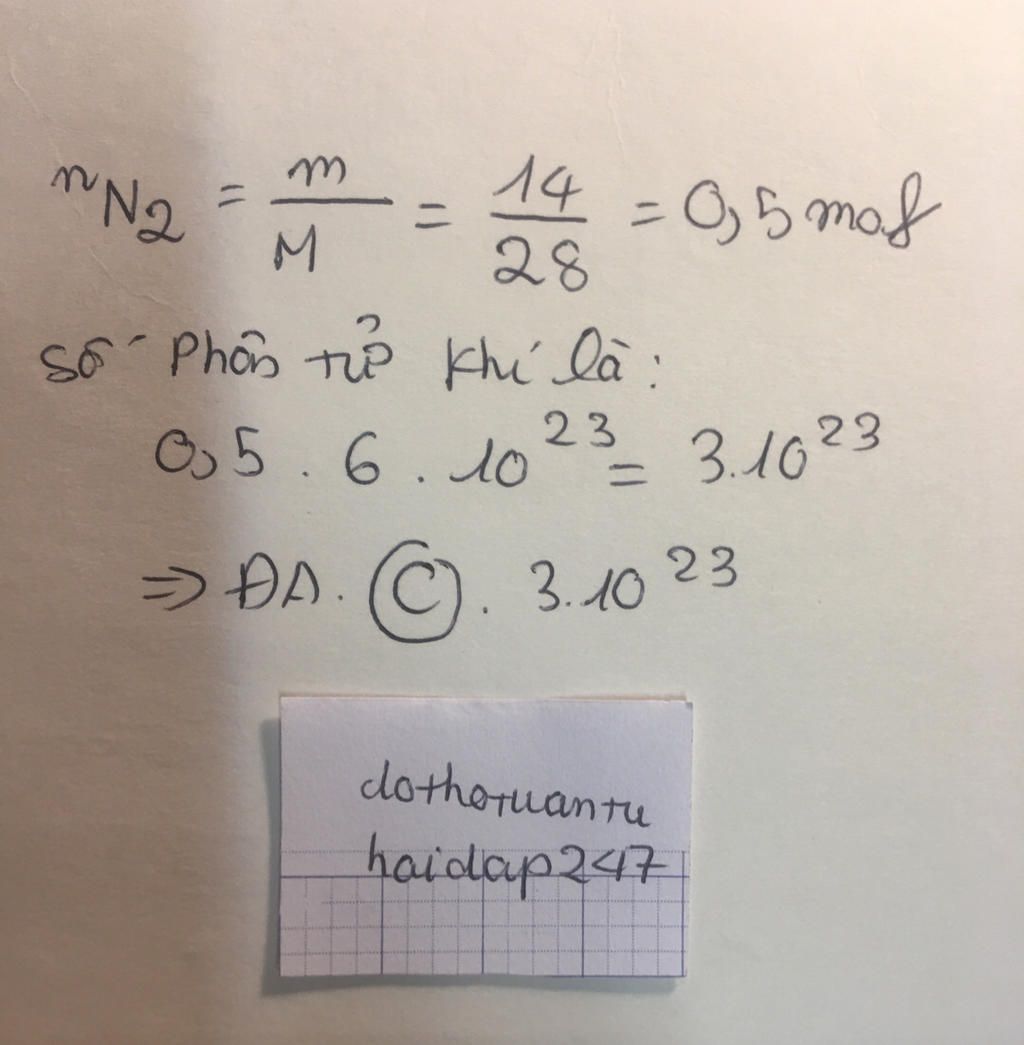 nN2 = m/M = 14/28 = 0,5 mol
Số Phân tử khí là:
0,5 . 6 . 10^23 = 3.10^23
=> ĐA. C. 3.10^23
dothotuantu
haidap247